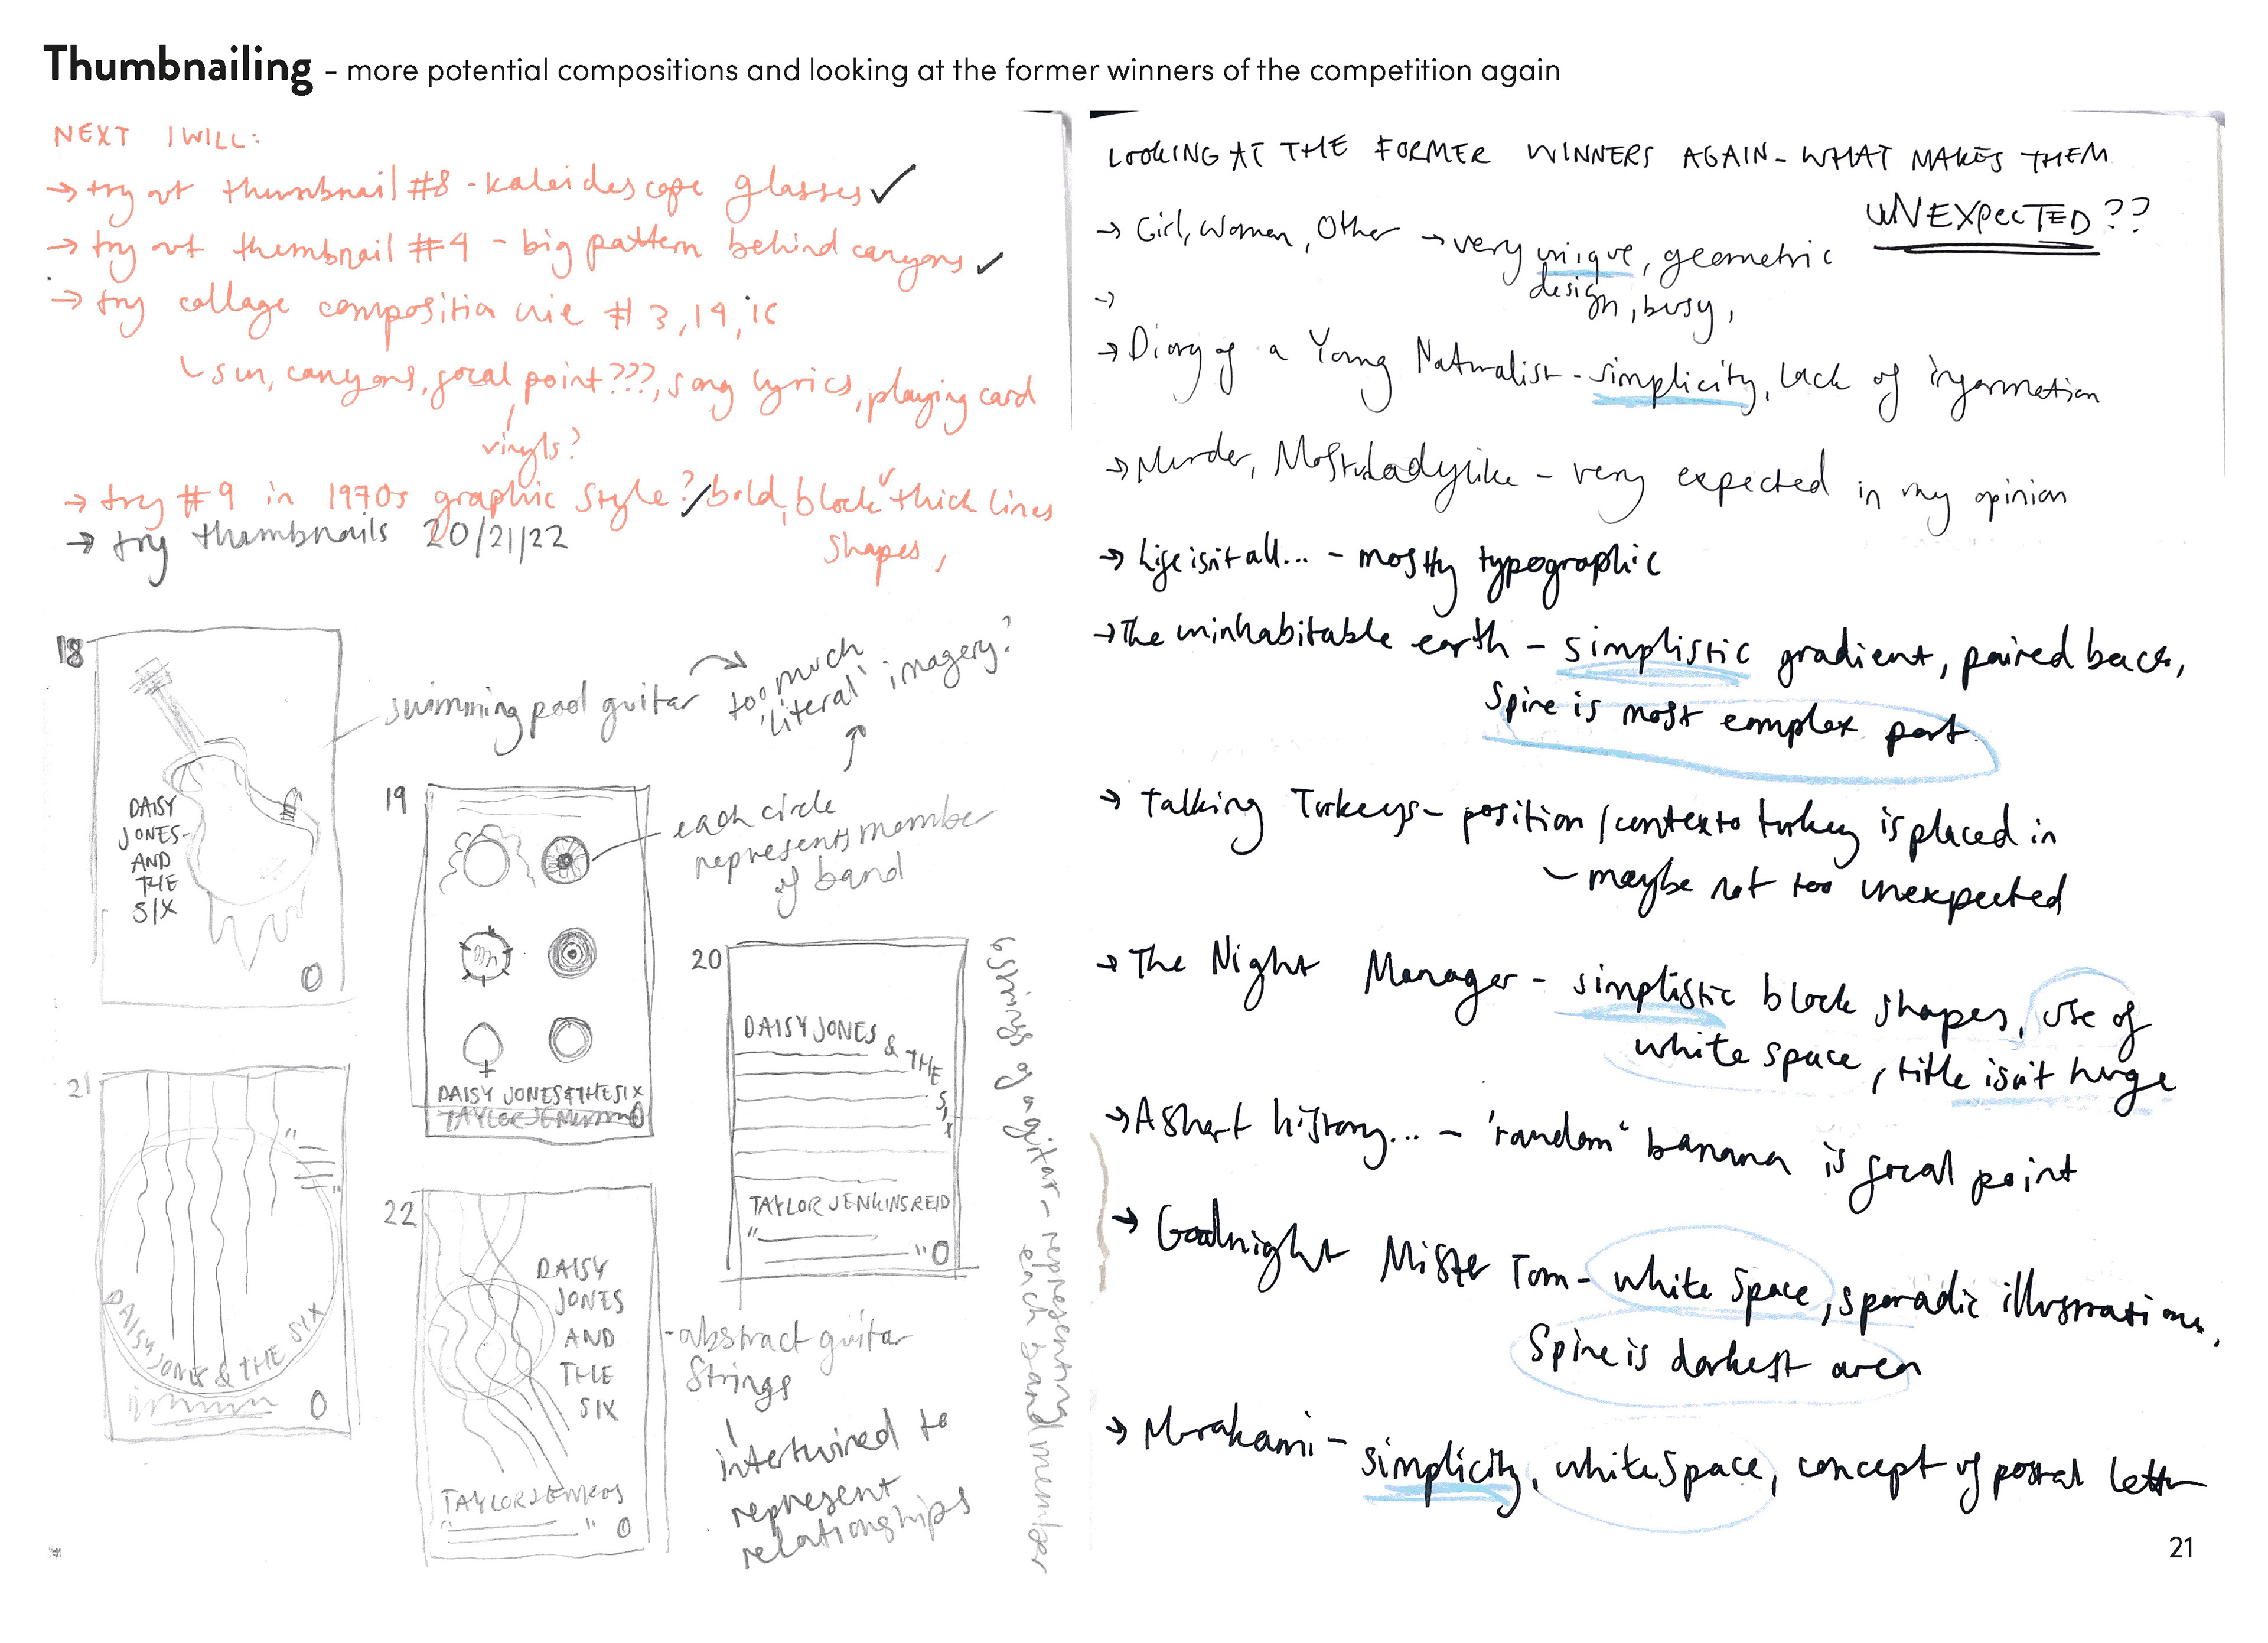 Thumbnailing – more potential compositions and looking at the former winners of the competition again
NEXT I WILL:
→ try out thumbnail #8 - kaleidescope glasses ✓
→ try out thumbnail #4 - big pattern behind canyons ✓
→ try collage composition
# 3, 14, 16
↳ sun, canyons, focal point???, song lyrics, playing card
vinyls?
→ try #9 in 1970s graphic style? ✓ bold, block thick lines
shapes,
→ try thumbnails 20/21/22
18
DAISY
JONES
AND
THE
SIX
swimming pool guitar → too much
'literal' imagery?
19
each circle
represents member
of band
DAISY JONES & THE SIX
20
DAISY JONES & THE
SIX
TAYLOR JENKINS REID
" "
6 strings of a guitar - representing
each band member
21
" "
DAISY JONES & THE SIX
22
DAISY
JONES
AND
THE
SIX
" "
- abstract guitar
strings
intertwined to
represent
relationships
LOOKING AT THE FORMER WINNERS AGAIN - WHAT MAKES THEM
UNEXPECTED??
→ Girl, Woman, Other → very unique, geometric
design, busy,
→
→ Diary of a Young Naturalist - simplicity, lack of information
→ Murder, Most Unladylike - very expected in my opinion
→ Life isn't all... - mostly typographic
→ The uninhabitable earth - simplistic gradient, paired back,
Spine is most complex part
→ Talking Turkeys - position/context turkey is placed in
- maybe not too unexpected
→ The Night Manager - simplistic block shapes, use of
white space, title isn't huge
→ A short history... - 'random' banana is focal point
→ Goodnight Mister Tom - white space, sporadic illustrations,
Spine is darkest area
→ Murakami - simplicity, white space, concept of postal letter
21